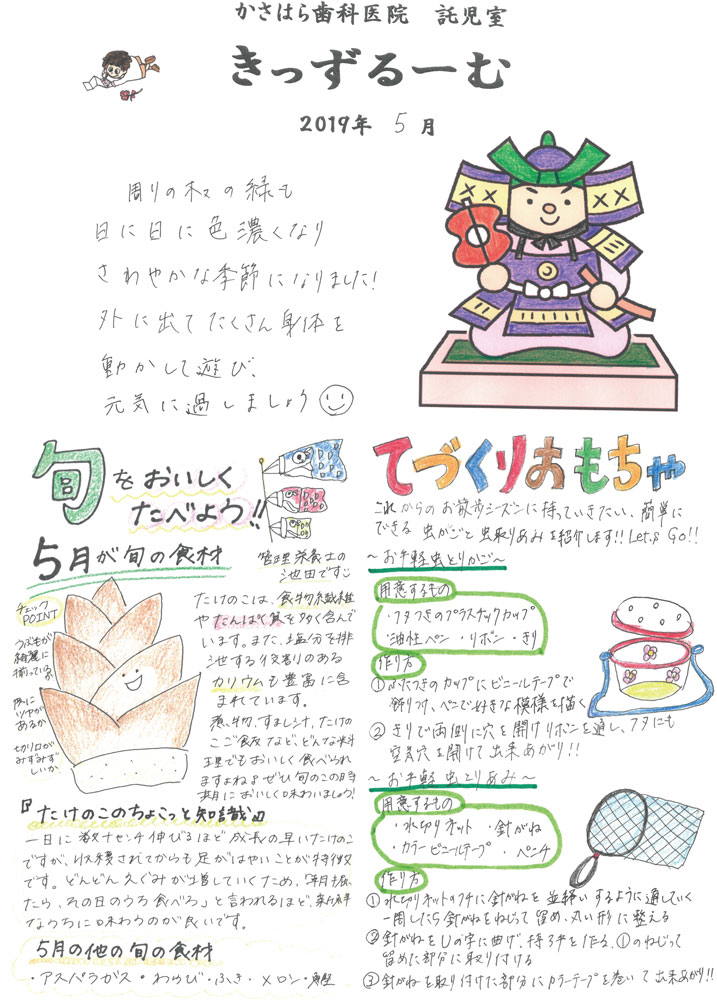 かさはら歯科医院 託児室
きっずるーむ
2019年 5月
周りの木々の緑も
日に日に色濃くなり
さわやかな季節になりました!
外に出てたくさん身体を
動かして遊び、
元気に過しましょう
旬をおいしく
たべよう!!
5月が旬の食材
管理栄養士の
池田です
チェック
POINT
うぶ毛が
綺麗に
揃っているか
皮に
ツヤが
あるか
切り口が
みずみず
しいか
たけのこは、食物繊維
やたんぱく質を多く含んで
います。また、塩分を排
泄する役割のある
カリウムも豊富に含
まれています。
煮物、すまし汁、たけの
こご飯など、どんな料
理でもおいしく食べられ
ますよね♪ぜひ旬のこの時
期においしく味わいましょう!
『たけのこのちょこっと知識』
一日に数十センチ伸びるほど成長の早いたけのこ
ですが、収穫されてからも足がはやいことが特徴
です。どんどんえぐみが増していくため、「朝掘っ
たら、その日のうち食べろ」と言われるほど、新鮮
なうちに味わうのが良いです。
5月の他の旬の食材
・アスパラガス・わらび・ふき・メロン・鰹
てづくりおもちゃ
これからのお散歩シーズンに持っていきたい、簡単に
できる虫かごと虫取りあみを紹介します!! Let's Go!!
～お手軽虫とりかご～
用意するもの
・フタつきのプラスチックカップ
・油性ペン ・リボン ・きり
作り方
①ふたつきのカップにビニールテープで
飾りつけ、ペンで好きな模様を描く
②きりで両側に穴を開けリボンを通し、フタにも
空気穴を開けて出来あがり!!
～お手軽虫とりあみ～
用意するもの
・水切りネット ・針がね
・カラービニールテープ ・ペンチ
作り方
①水切りネットのフチに針がねを並縫いするように通していく
一周したら針がねをねじって留め、丸い形に整える
②針がねをUの字に曲げ、持ち手を作る、①のねじって
留めた部分に取り付ける
③針がねを取り付けた部分にカラーテープを巻いて出来あがり!!